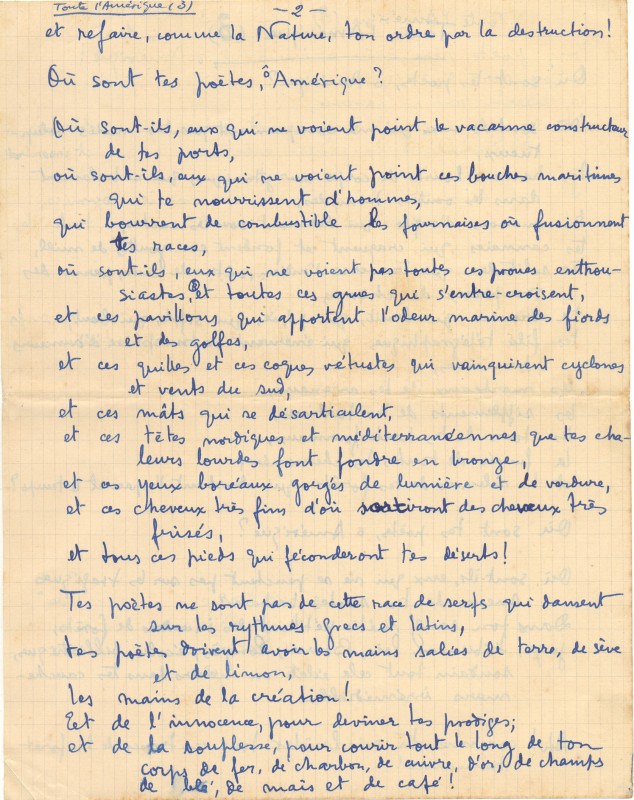 Toute l'Amérique (3)
— 2 —
et refaire, comme la Nature, ton ordre par la destruction!
Où sont tes poètes, ô Amérique?
Où sont-ils, eux qui ne voient point le vacarme constructeur
de tes ports,
où sont-ils, eux qui ne voient point ces bouches maritimes
qui te nourrissent d'hommes,
qui bourrent de combustible les fournaises où fusionnent
tes races,
où sont-ils, eux qui ne voient pas toutes ces proues enthou-
siastes, et toutes ces grues qui s'entre-croisent,
et ces pavillons qui apportent l'odeur marine des fiords
et des golfes,
et ces quilles et ces coques vétustes qui vainquirent cyclones
et vents du sud,
et ces mâts qui se désarticulent,
et ces têtes nordiques et méditerranéennes que tes cha-
leurs lourdes font fondre en bronze,
et ces yeux boréaux gorgés de lumière et de verdure,
et ces cheveux très fins d'où sortiront des cheveux très
frisés,
et tous ces pieds qui féconderont tes déserts!
Tes poètes ne sont pas de cette race de serfs qui dansent
sur les rythmes grecs et latins,
tes poètes doivent avoir les mains salies de terre, de sève
et de limon,
les mains de la création!
Eet de l'innocence, pour deviner tes prodiges;
et de la souplesse, pour courir tout le long de ton
corps de fer, de charbon, de cuivre, d'or, de champs
de blé, de maïs et de café!